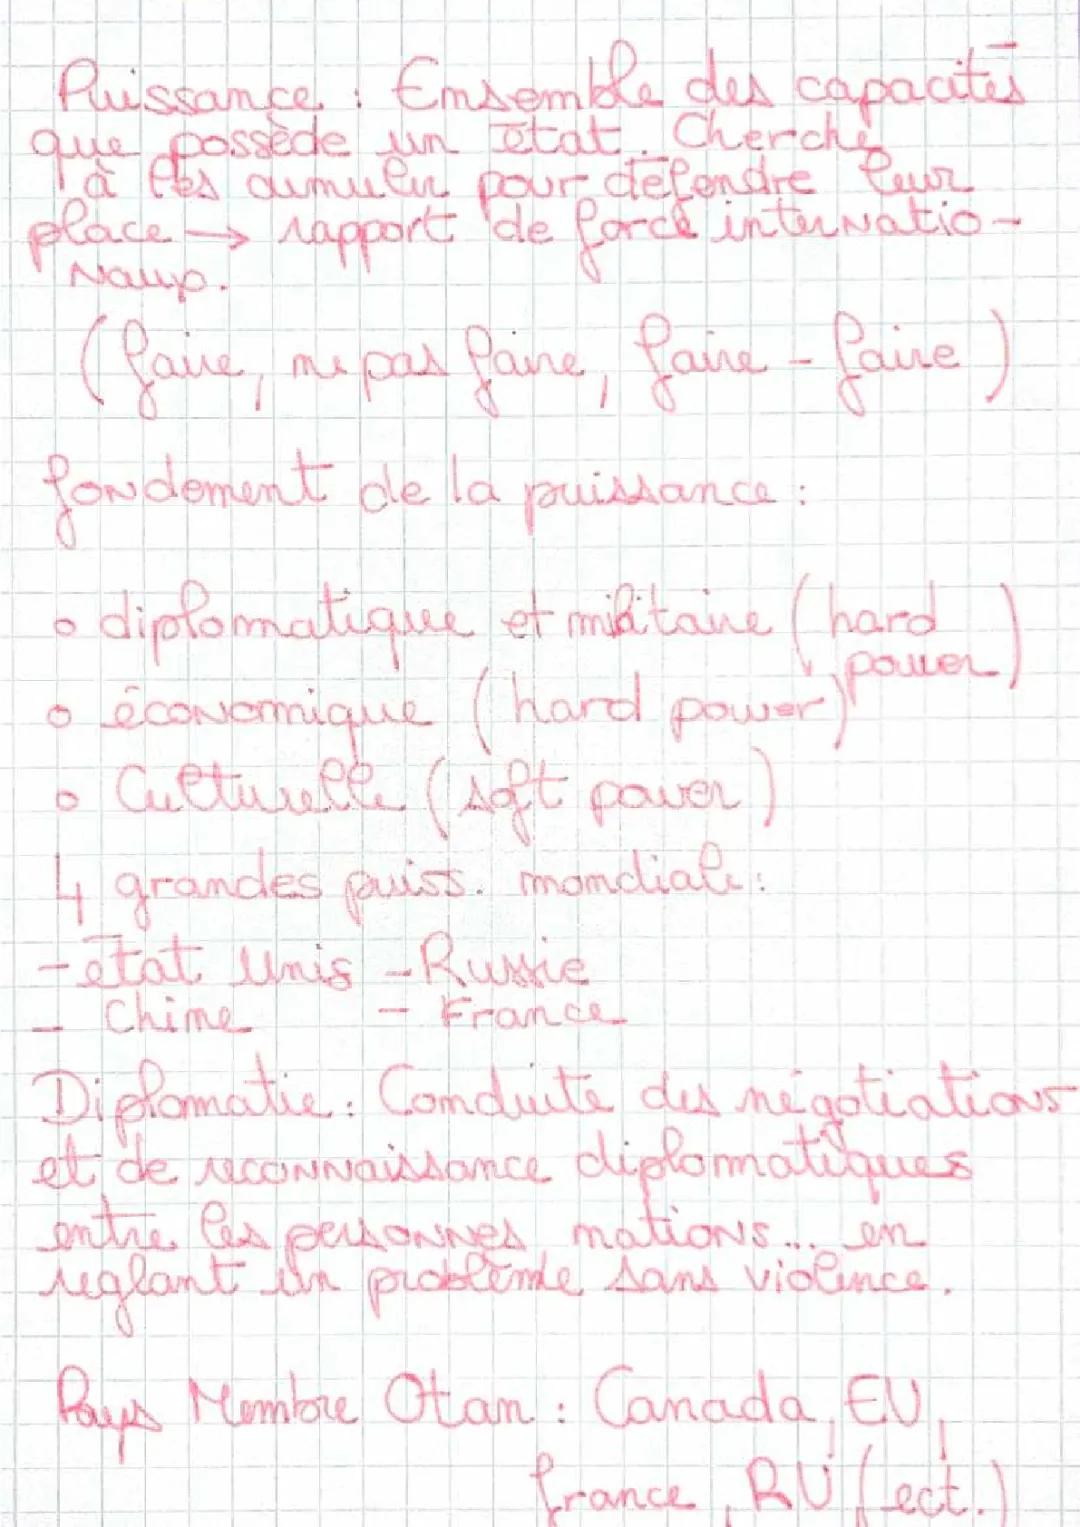 Puissance : Ensemble des capacités
que possède un état. Cherche
à les cumuler pour défendre leur
place → rapport de force internatio-
naux.
(faire, ne pas faire, faire-faire)
fondement de la puissance :
o diplomatique et militaire (hard
power)
o économique (hard power)
o Culturelle (soft power)
4 grandes puiss. mondiale :
- état unis - Russie
- Chine - France
Diplomatie : Conduite des négotiations
et de reconnaissance diplomatiques
entre les personnes, nations... en
reglant un problème sans violence.
Pays Membre Otan : Canada, EU,
france, RU (ect.)